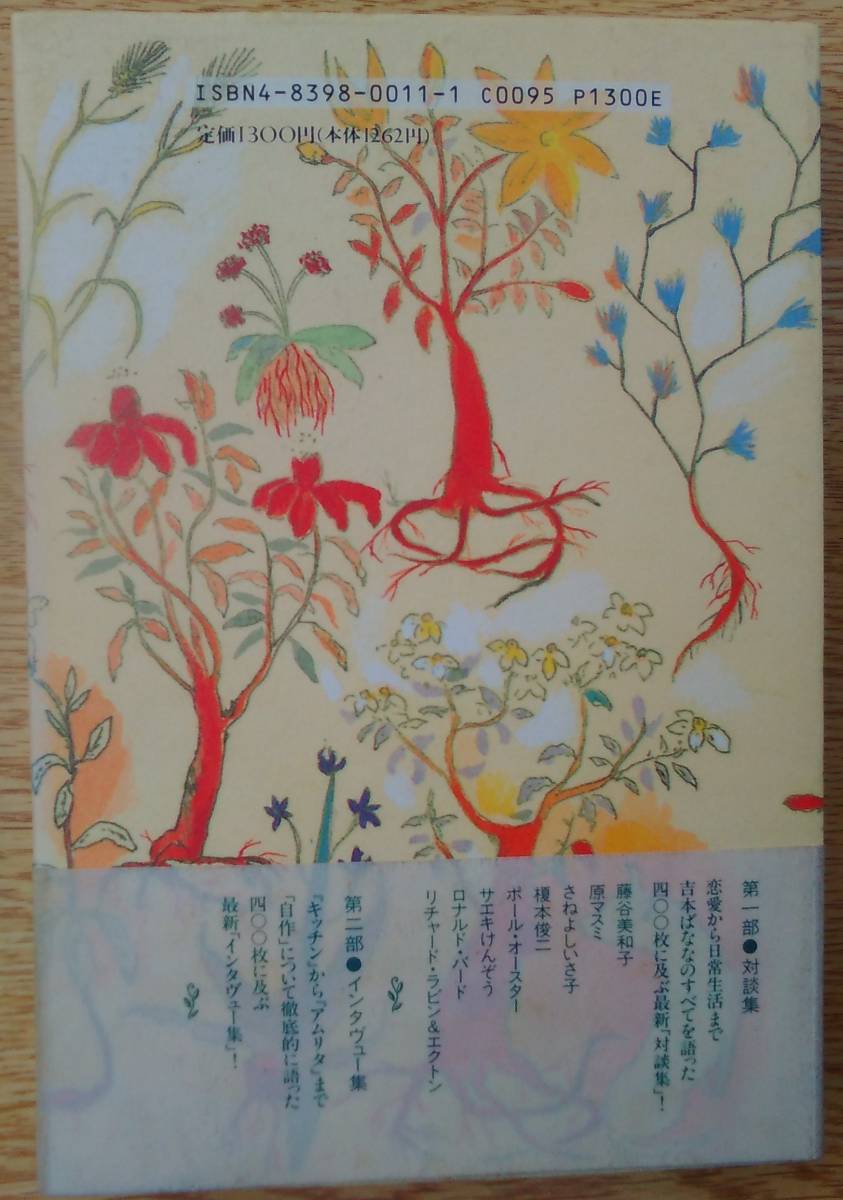 ISBN4-8398-0011-1 C0095 P1300E
定価1300円(本体1262円)
第一部●対談集
恋愛から日常生活まで
吉本ばななのすべてを語った
四〇〇枚に及ぶ最新『対談集』!
藤谷美和子
原マスミ
さねよしいさ子
榎本俊二
ポール・オースター
サエキけんぞう
ロナルド・バード
リチャード・ラビン&エクトン
第二部●インタヴュー集
『キッチン』から『アムリタ』まで
「自作」について徹底的に語った
四〇〇枚に及ぶ
最新『インタヴュー集』!